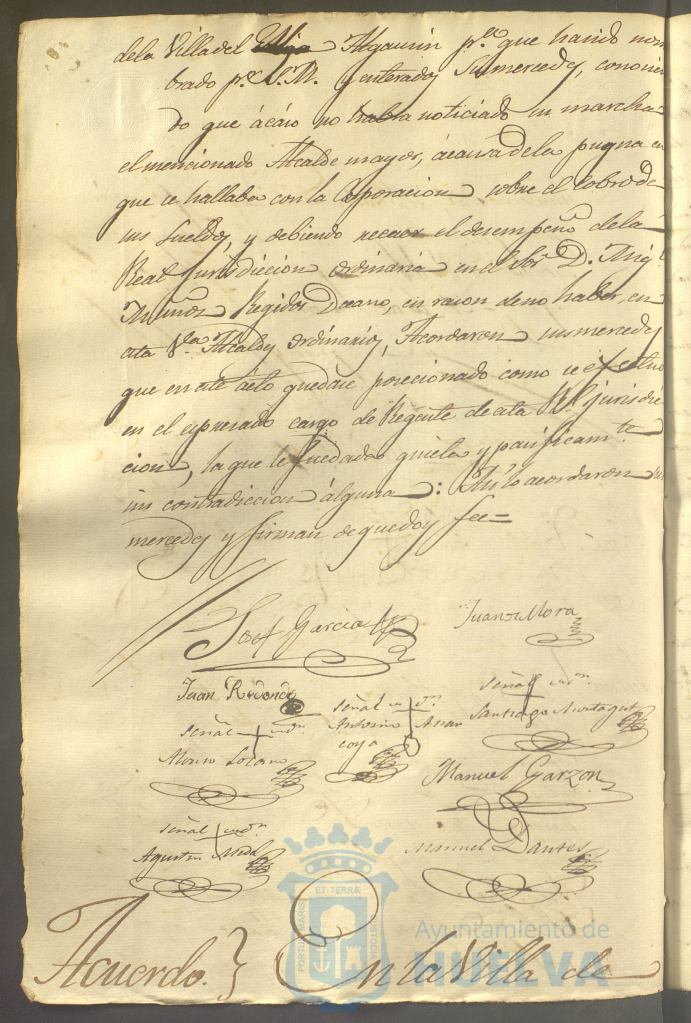 dela Villa del Algaurin p.r lo que haviendo nom
brado p.r S.M. y enterados Sus mercedes, conocien
do que acáso no habra noticiado su marcha
el mencionado Alcalde mayor, ácausa dela pugna en
que se hallaba con la Coporacion sobre el cobro de
sus sueldos, y debiendo recaer el desempeño dela
Real Jurisdiccion ordinaria en el Sor. D. Mig.l
Muños Regidor Decano, en razon de no haber en
esta V.lla Alcaldes ordinarios, Acordaron sus mercedes
que en este acto quedase posecionado como se efectuo
en el expresado cargo de Regente de esta R.l jurisdic
cion, la que le fue dada quieta y pacificam.te
sin contradiccion álguna: Asi lo acordaron sus
mercedes y firman de que doy fee=
José Garcia
Juan Mora
Juan Redondo
señal de
Antonio Arran
coya
señal de
Santiago Montagut
señal de
Alonso Lozano
Manuel Garzon
señal de
Agustin
Manuel Dantes
Acuerdo.} En la Villa de
ET TERRÆ
PORTUS MARIS
CUSTODIA
Ayuntamiento de
HUELVA